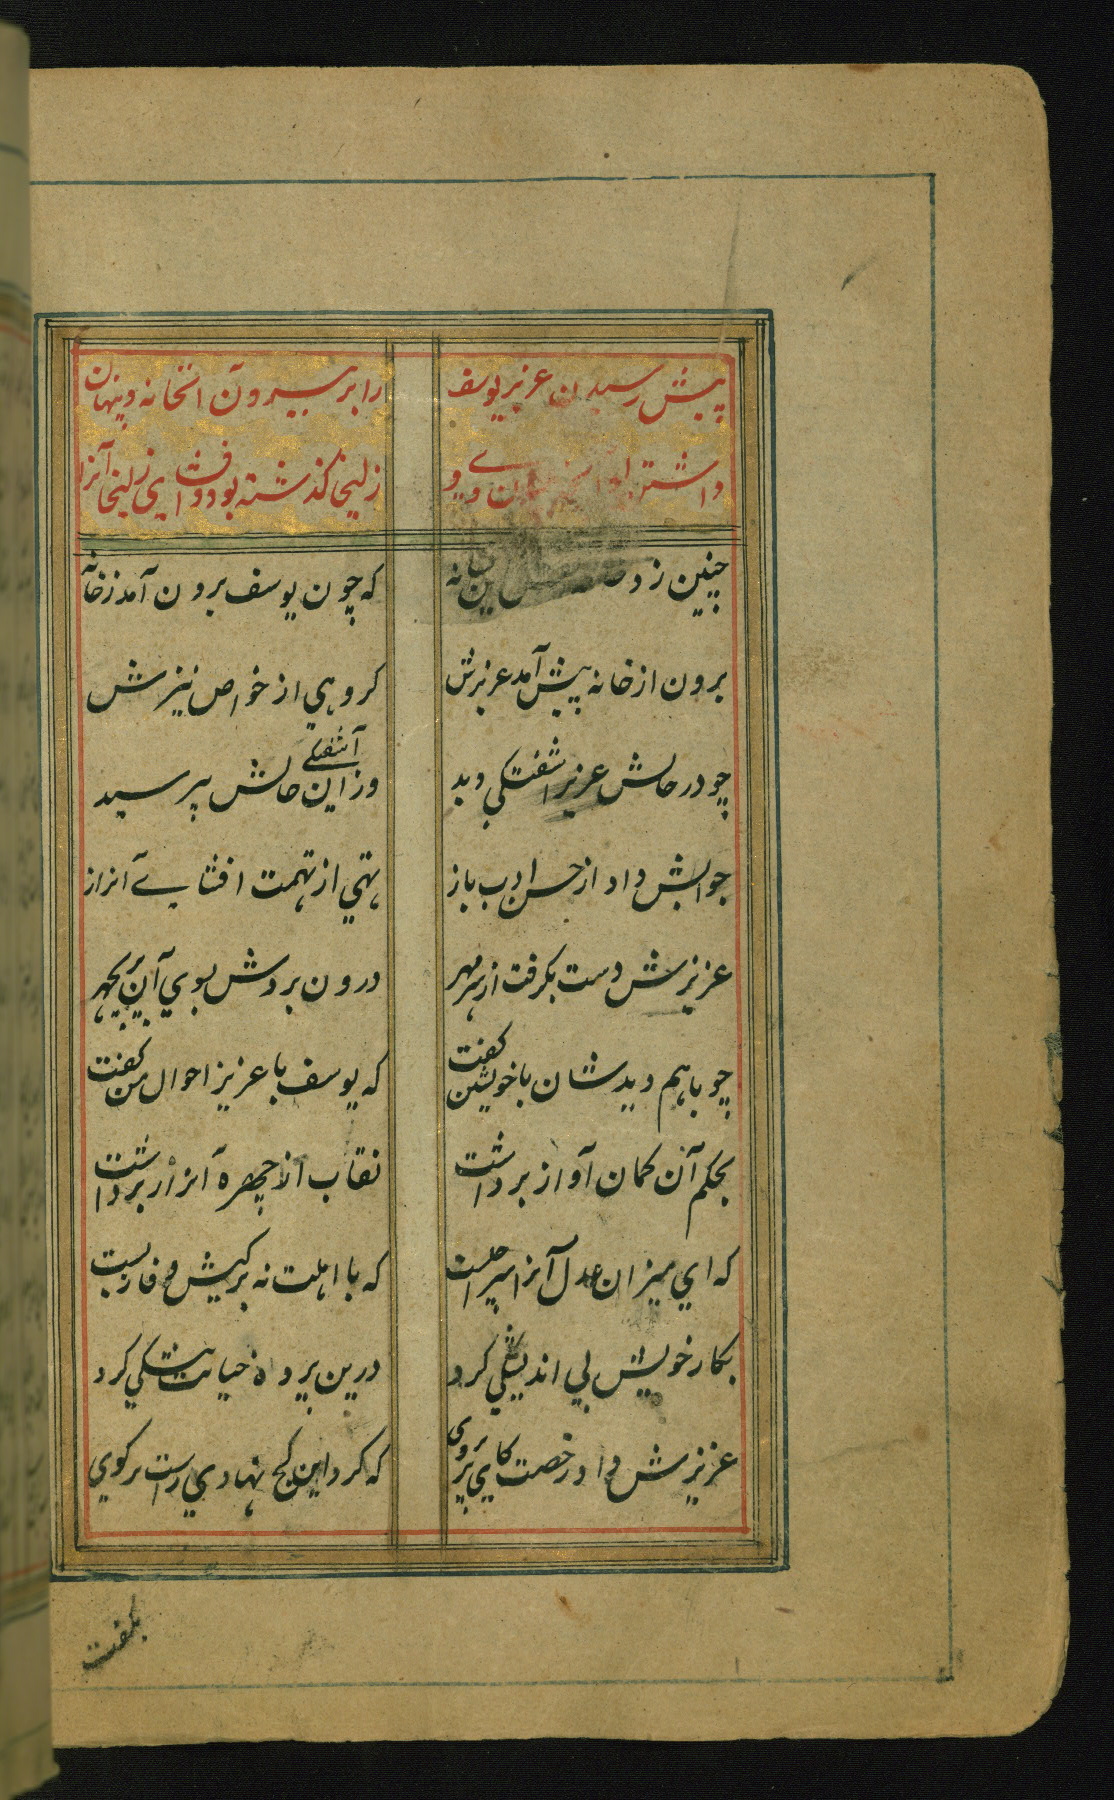 پیش رسیدن عزیز یوسف را بر بیرون آنخانه و پنهان
داشتن زلیخا گذشته بود و افشای زلیخا آنرا
چنین زد خامه که چون یوسف برون آمد ز خانه
برون از خانه پیش آمد عزیزش کروهی از خواص نیزش
چو در حالش عزیز اشفتگی دید وز این آشفتگی حالش بپرسید
جوابش داد از حسن ادب باز تهی از تهمت افشای آنراز
عزیزش دست بگرفت از سر مهر درون بردش بسوی آن پریچهر
چو باهم دیدشان با خویشتن گفت که یوسف با عزیز احوال من گفت
بحکم آن گمان آواز برداشت نقاب از چهره آنراز برداشت
که ای میزان عدل آنرا سزا چیست که با اهلت نه بر کیش وفا زیست
بکار خویش بی اندیشگی کرد درین پرده خیانت پیشگی کرد
عزیزش داد رخصت کای پری روی که کرد این کج نهادی راست برگوی
بگفت